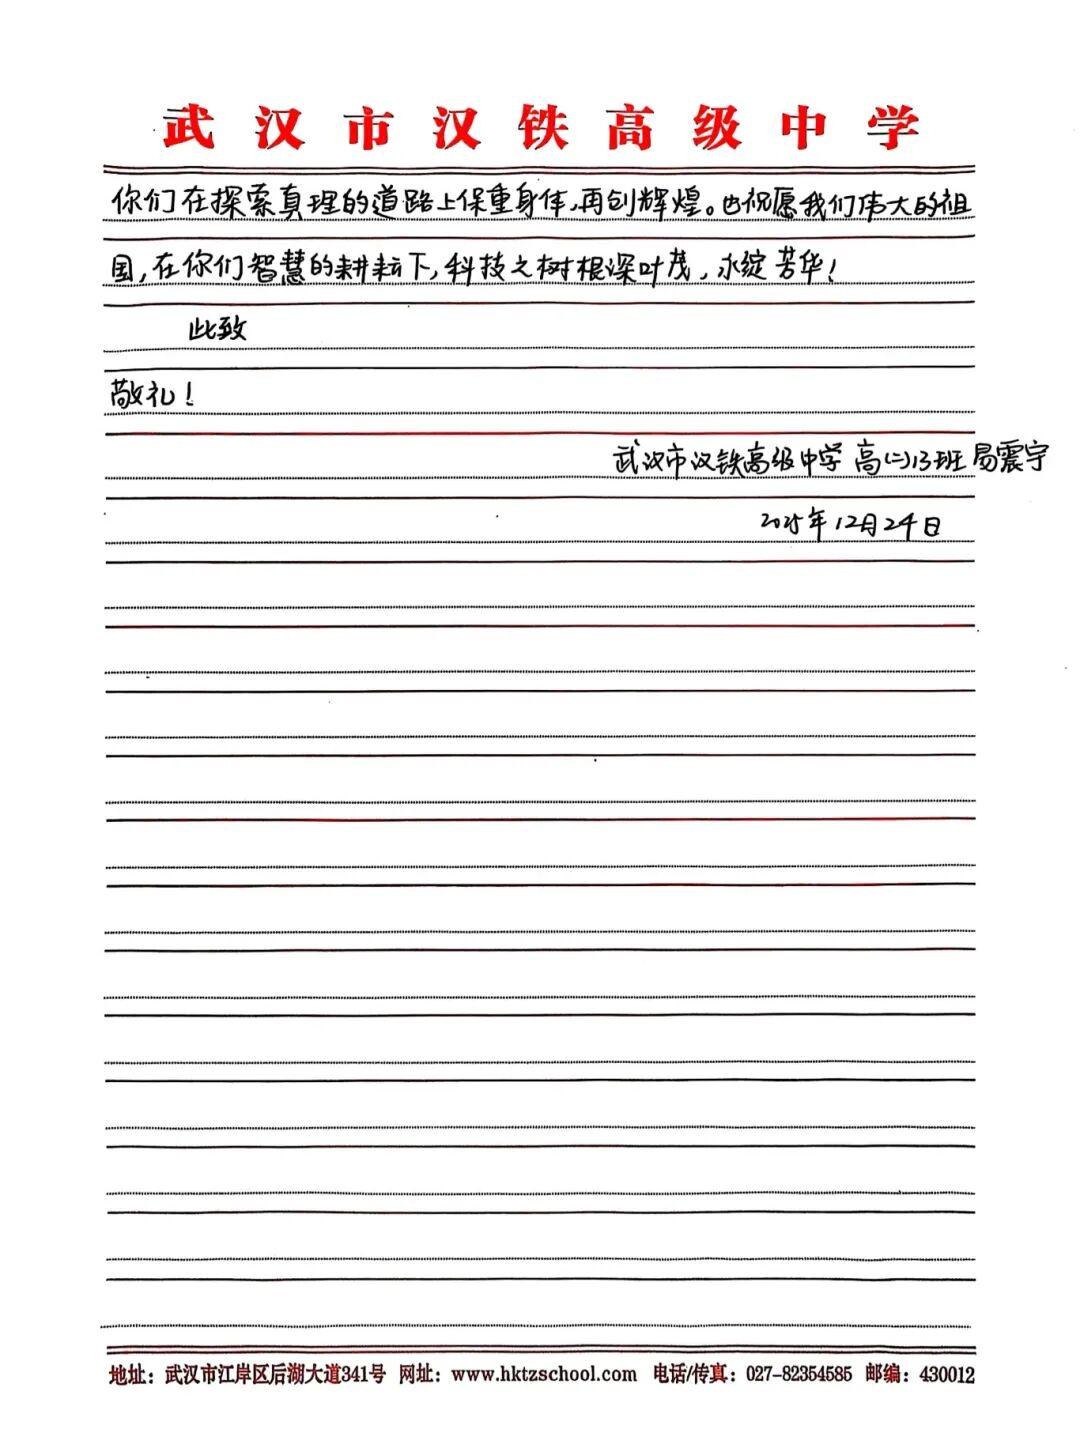 武汉市汉铁高级中学
你们在探索真理的道路上保重身体,再创辉煌。也祝愿我们伟大的祖
国,在你们智慧的耕耘下,科技之树根深叶茂,永绽芳华!
此致
敬礼!
武汉市汉铁高级中学 高(二)13班 易震宇
2025年12月24日
地址：武汉市江岸区后湖大道341号 网址：www.hktzschool.com 电话/传真：027-82354585 邮编：430012